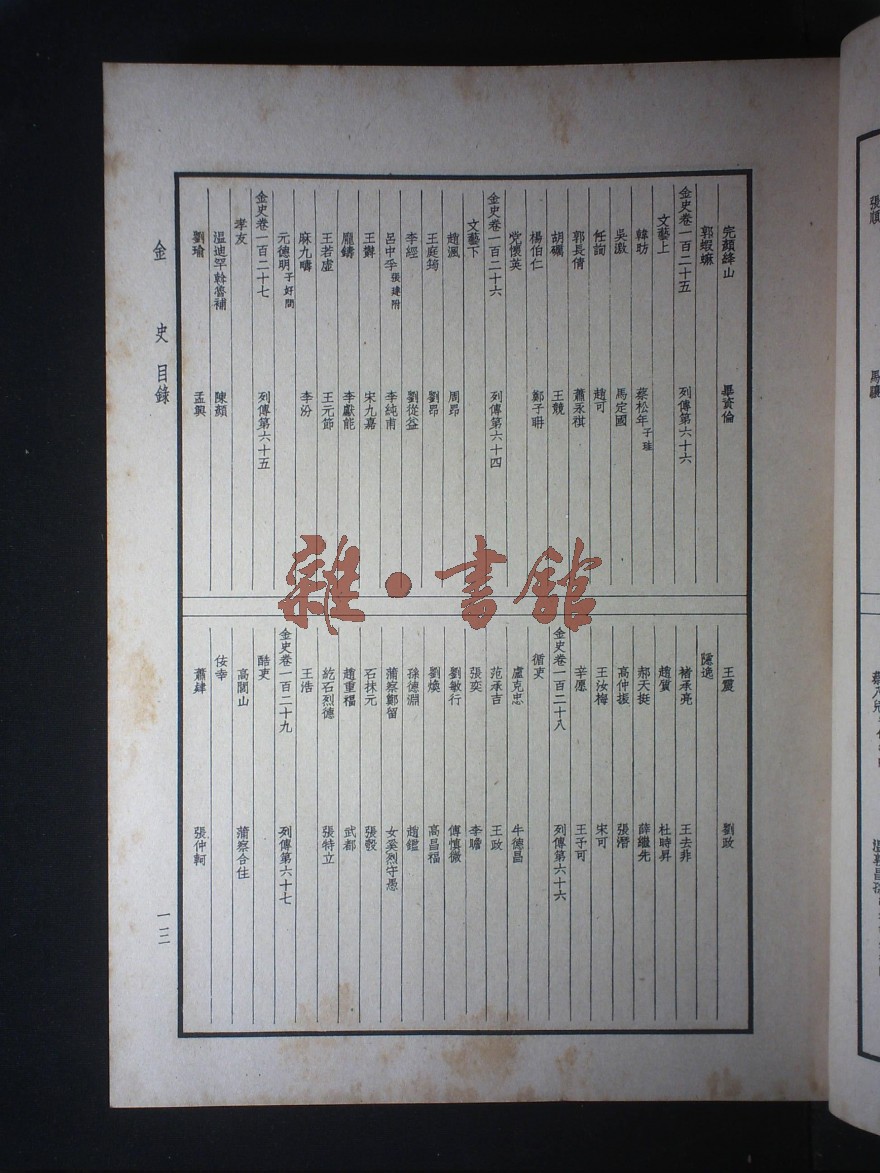 完顏絳山　畢資倫
郭蝦䗫
金史卷一百二十五　列傳第六十六
文藝上
韓昉　蔡松年子珪
吳激　馬定國
任詢　趙可
郭長倩　蕭永祺
胡礪　王競
楊伯仁　鄭子聃
党懷英
金史卷一百二十六　列傳第六十四
文藝下
趙渢　周昂
王庭筠　劉昂
李經　劉從益
呂中孚張建附　李純甫
王鬱　宋九嘉
龐鑄　李獻能
王若虛　王元節
麻九疇　李汾
元德明子好問
金史卷一百二十七　列傳第六十五
孝友
溫迪罕斡魯補　陳顏
劉瑜　孟興
王震　劉政
隱逸
褚承亮　王去非
趙質　杜時昇
郝天挺　薛繼先
高仲振　張潛
王汝梅　宋可
辛愿　王予可
金史卷一百二十八　列傳第六十六
循吏
盧克忠　牛德昌
范承吉　王政
張奕　李瞻
劉敏行　傅慎微
劉煥　高昌福
孫德淵　趙鑑
蒲察鄭留　女奚烈守愚
石抹元　張彀
趙重福　武都
紇石烈德　張特立
王浩
金史卷一百二十九　列傳第六十七
酷吏
高閭山　蒲察合住
佞幸
蕭肄　張仲軻
金史目錄
一三
雜·書館
張順
馬驤